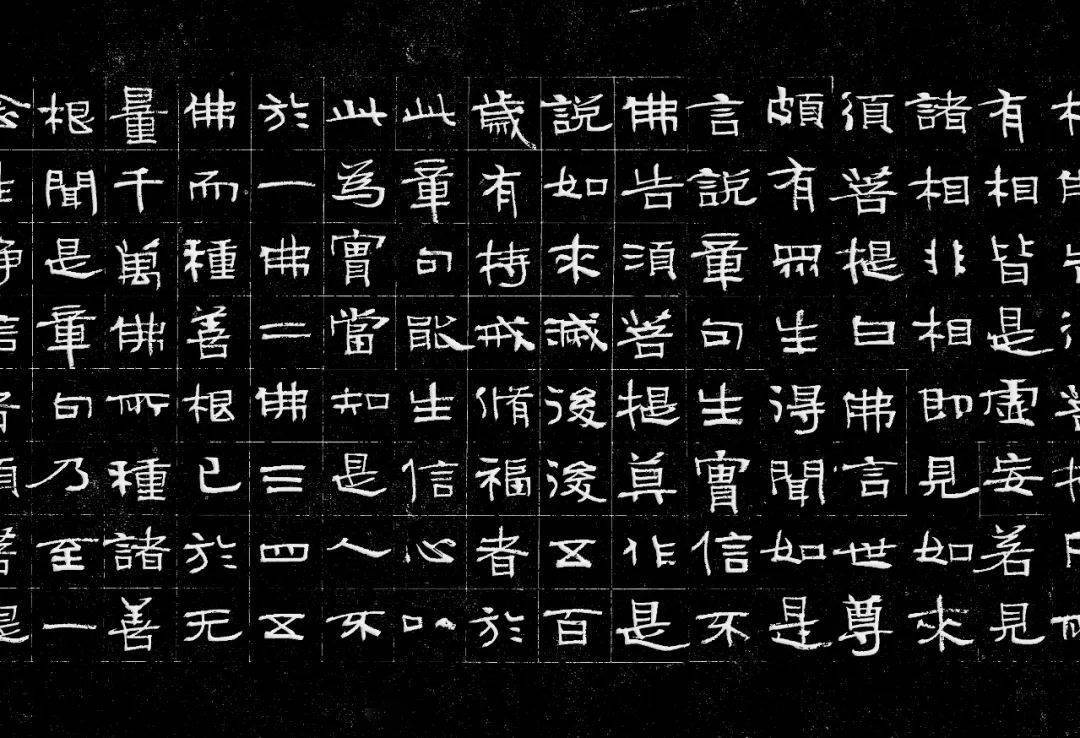 相佛告須菩提凡所
有相皆是虛妄若見
諸相非相即見如來
須菩提白佛言世尊
頗有眾生得聞如是
言說章句生實信不
佛告須菩提莫作是
說如來滅後後五百
歲有持戒脩福者於
此章句能生信心以
此為實當知是人不
於一佛二佛三四五
佛而種善根已於无
量千萬佛所種諸善
根聞是章句乃至一
念生淨信者須菩提